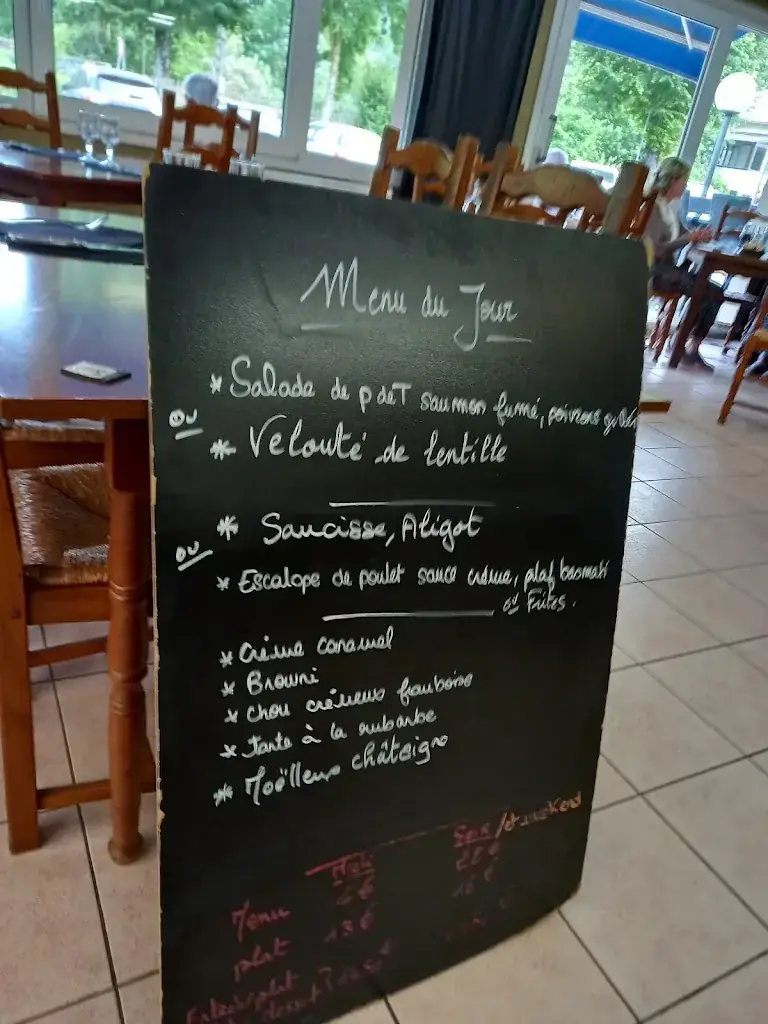 Menu du Jour
* Salade de p de T saumon fumé, poivrons
ou
* Velouté de lentille
* Saucisse, Aligot
ou
* Escalope de poulet sauce crème, plaf basmati
ou Frites.
* Crème caramel
* Browni
* Chou crémeux framboise
* Tarte à la rubarbe
* Moëlleux châtaigne
Midi Soir / et weekend
Menu
plat 13 €